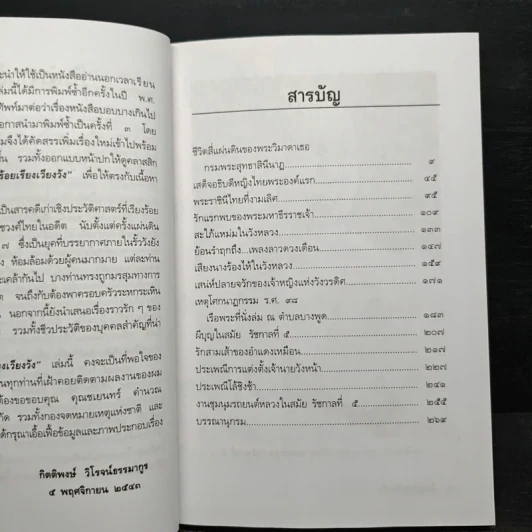 ะนำให้ใช้เป็นหนังสืออ่านนอกเวลาเรียน
ล่มนี้ได้มีการพิมพ์ซ้ำอีกครั้งในปี พ.ศ.
ศัพท์มาต่อว่าเรื่องหนังสือบอบบางเกินไป
อกาสนำมาพิมพ์ซ้ำเป็นครั้งที่ ๓ โดย
มจึงได้คัดสรรเพิ่มเรื่องใหม่เข้าไปพร้อม
ขึ้น รวมทั้งออกแบบหน้าปกให้ดูคลาสสิก
ร้อยเรียงเวียงวัง" เพื่อให้ตรงกับเนื้อหา
เป็นสารคดีเก่าเชิงประวัติศาสตร์ที่เรียงร้อย
ชวงศ์ไทยในอดีต นับตั้งแต่ครั้งแผ่นดิน
๗ ซึ่งเป็นยุคที่บรรยากาศภายในรั้ววังยัง
ห้อมล้อมด้วยผู้คนมากมาย แต่ละท่าน
ะเคล้ากันไป บางท่านทรงถูกมรสุมทางการ
ต จนถึงกับต้องพาครอบครัวระหกระเหิน
นอกจากนี้ยังนำเสนอเรื่องราวรัก ๆ ของ
รวมทั้งชีวประวัติของบุคคลสำคัญที่น่า
ยงเวียงวัง" เล่มนี้ คงจะเป็นที่พอใจของ
นทุกท่านที่เฝ้าคอยติดตามผลงานของผม
ต้องขอขอบคุณ คุณชเยนทร์ คำนวณ
กัด รวมทั้งกองจดหมายเหตุแห่งชาติ และ
ด้กรุณาเอื้อเฟื้อข้อมูลและภาพประกอบเรื่อง
กิตติพงษ์ วิโรจน์ธรรมากูร
๕ พฤศจิกายน ๒๕๔๓
สารบัญ
ชีวิตสี่แผ่นดินของพระวิมาดาเธอ
กรมพระสุทธาสินีนาฏ ๙
เสด็จอธิบดีหญิงไทยพระองค์แรก ๔๕
พระราชินีไทยที่งามเลิศ ๙๕
รักแรกพบของพระมหาธีรราชเจ้า ๑๐๙
สะใภ้แหม่มในวังหลวง ๑๓๓
ย้อนรำฤกถึง...เพลงลาวดวงเดือน ๑๔๗
เสียงนางร้องไห้ในวังหลวง ๑๕๙
เสน่ห์ปลายจวักของเจ้าหญิงแห่งวังวรดิศ ๑๗๑
เหตุโศกนาฏกรรม ร.ศ. ๙๘
เรือพระที่นั่งล่ม ณ ตำบลบางพูด ๑๘๓
ผีบุญในสมัย รัชกาลที่ ๕ ๒๐๗
รักสามเส้าของอำแดงเหมือน ๒๑๗
ประเพณีการแต่งตั้งเจ้านายวังหน้า ๒๒๗
ประเพณีโล้ชิงช้า ๒๔๑
งานชุมนุมรถยนต์หลวงในสมัย รัชกาลที่ ๕ ๒๕๕
บรรณานุกรม ๒๖๙